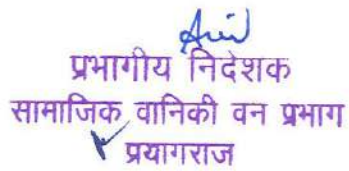 प्रभागीय निदेशक
सामाजिक वानिकी वन प्रभाग
प्रयागराज